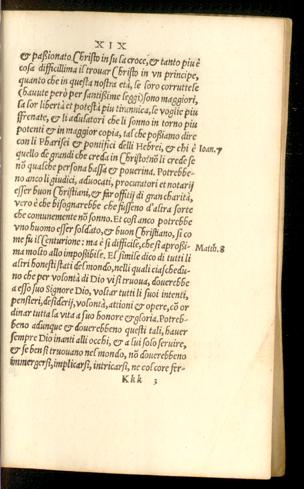 XIX
& paßionato Christo in su la croce, & tanto piu è
cosa difficillima il trouar Christo in vn principe,
quanto che in questa nostra età, se loro corruttele
(hauute però per santißime leggi) sono maggiori,
la lor libertà et potestà piu tirannica, le voglie piu
sfrenate, & li adulatori che li sonno in torno piu
potenti & in maggior copia, tal che poßiamo dire
con li Pharisei & pontifici delli Hebrei, & chi è
Ioan. 7
quello de grandi che creda in Christo? nõ li crede se
nõ qualche persona bassa & pouerina. Potrebbe-
no anco li giudici, aduocati, procuratori et notarij
esser buon Christiani, & far offitij di gran charità,
vero è che bisognarebbe che fusseno d'altra sorte
che comunemente nõ sonno. Et cosi anco potrebbe
vno huomo esser soldato, & buon Christiano, si co
me fu il Centurione: ma è si difficile, che s'aproßi-
Matth. 8
ma molto allo impoßibile. El simile dico di tutti li
altri honesti stati del mondo, nelli quali ciaschedu-
no che per volontà di Dio vi si truoua, douerebbe
a esso suo Signore Dio, voltar tutti li suoi intenti,
pensieri, desiderij, volontà, attioni & opere, cõ or
dinar tutta la vita a suo honore & gloria. Potreb-
beno adunque & douerebbeno questi tali, hauer
sempre Dio inanti alli occhi, & a lui solo seruire,
& se ben si truouano nel mondo, nõ douerebbeno
immergersi, implicarsi, intricarsi, ne col core fer-
Kkk 3